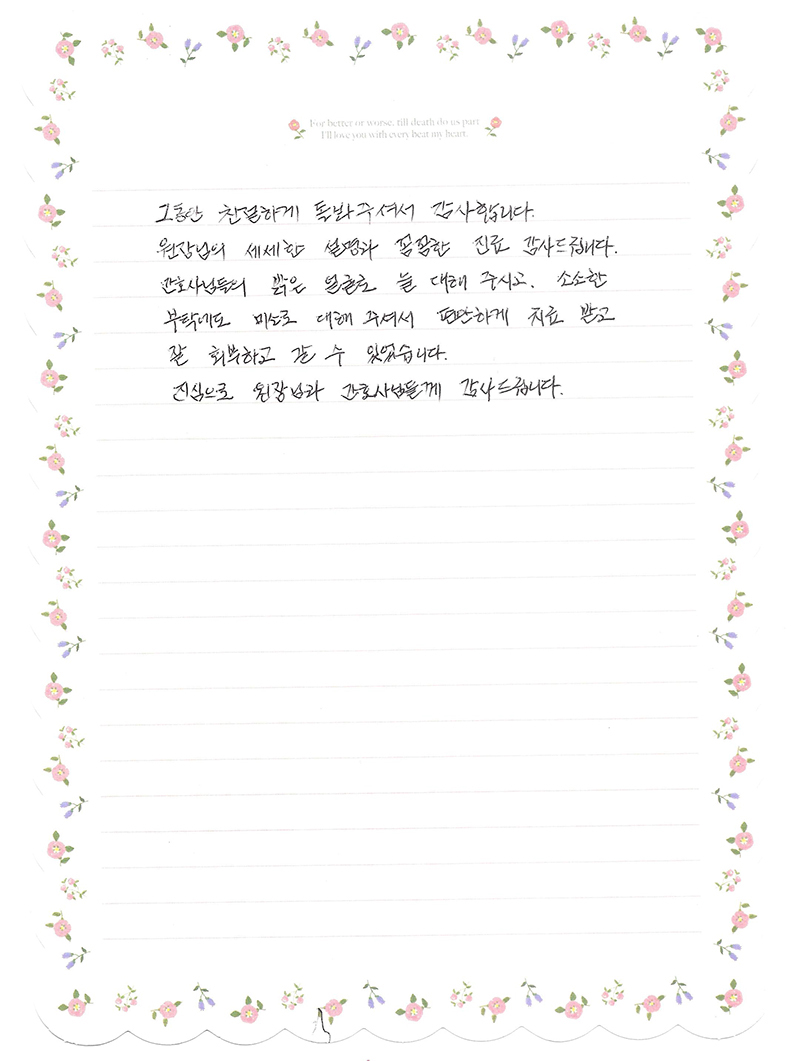 For better or worse, till death do us part
I'll love you with every beat my heart.
그동안 친절하게 돌봐주셔서 감사합니다.
원장님의 세세한 설명과 꼼꼼한 진료 감사드립니다.
간호사님들의 밝은 얼굴로 늘 대해 주시고, 소소한
부탁에도 미소로 대해 주셔서 편안하게 치료 받고
잘 회복하고 갈 수 있었습니다.
진심으로 원장님과 간호사님들께 감사드립니다.